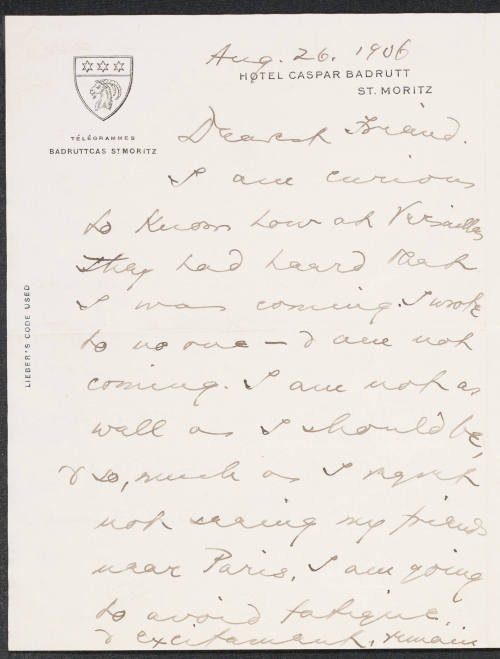 Aug. 26. 1906
HOTEL CASPAR BADRUTT
ST. MORITZ
TÉLÉGRAMMES
BADRUTTCAS ST MORITZ
LIEBER'S CODE USED
Dearest Friend.
I am curious
to know how at Versailles
they had heard that
I was coming. I wrote
to no one – & am not
coming. I am not as
well as I should be,
& so, much as I regret
not seeing my friends
near Paris, I am going
to avoid fatigue
& excitement, remain